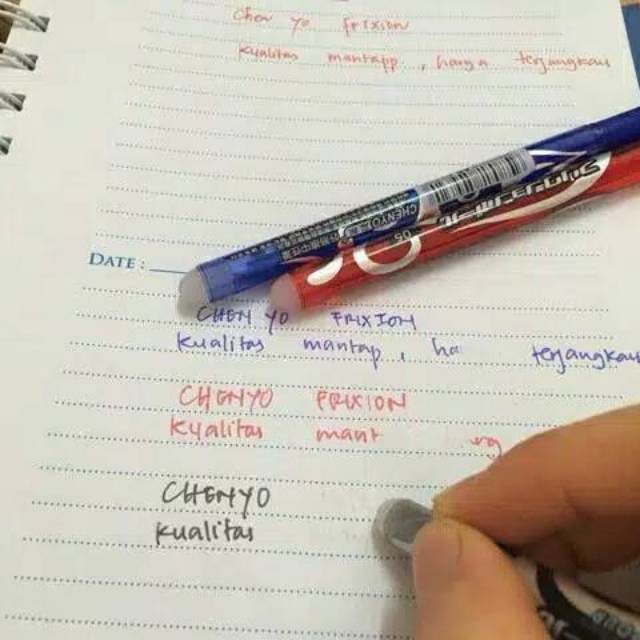 Chen yo frixion
Kualitas mantapp, harga terjangkau
CHENYO
05
DATE:
CHEN YO FRIXION
kualitas mantap, ha terjangkau
CHENYO FRIXION
Kyalitas mant
CHENYO
Kualitas